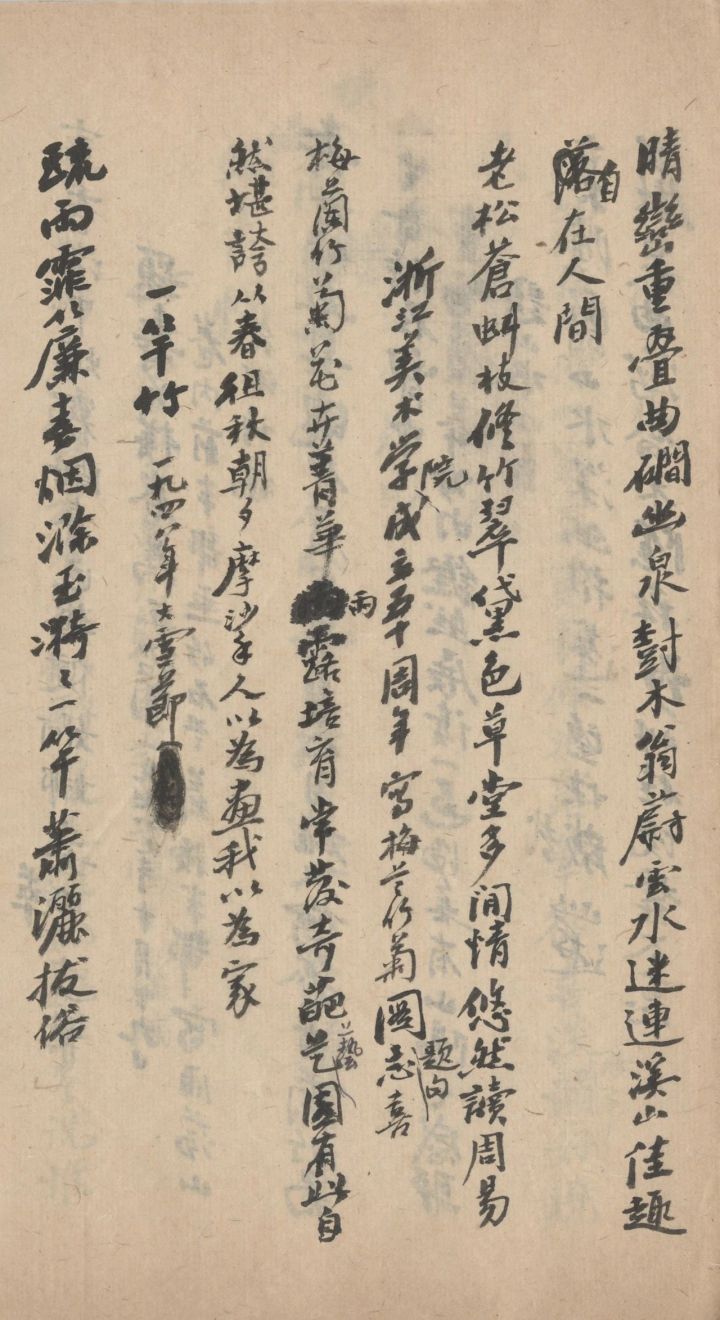 晴巒重叠曲磵幽泉樹木蓊蔚雲水迷連溪山佳趣
自落在人間
老松蒼虬枝修竹翠黛色草堂多闲情悠然讀周易
浙江美术学院成立五十周年寫梅兰竹菊圖志喜题句
梅蘭竹菊花卉菁華雨露培育常發奇葩艺藝園有此自
然堪誇从春徂秋朝夕摩挲人以為画我以為家
一竿竹 一九四八年大雪節
疏雨霏从簾春烟滌玉漪〻一竿蕭灑拔俗